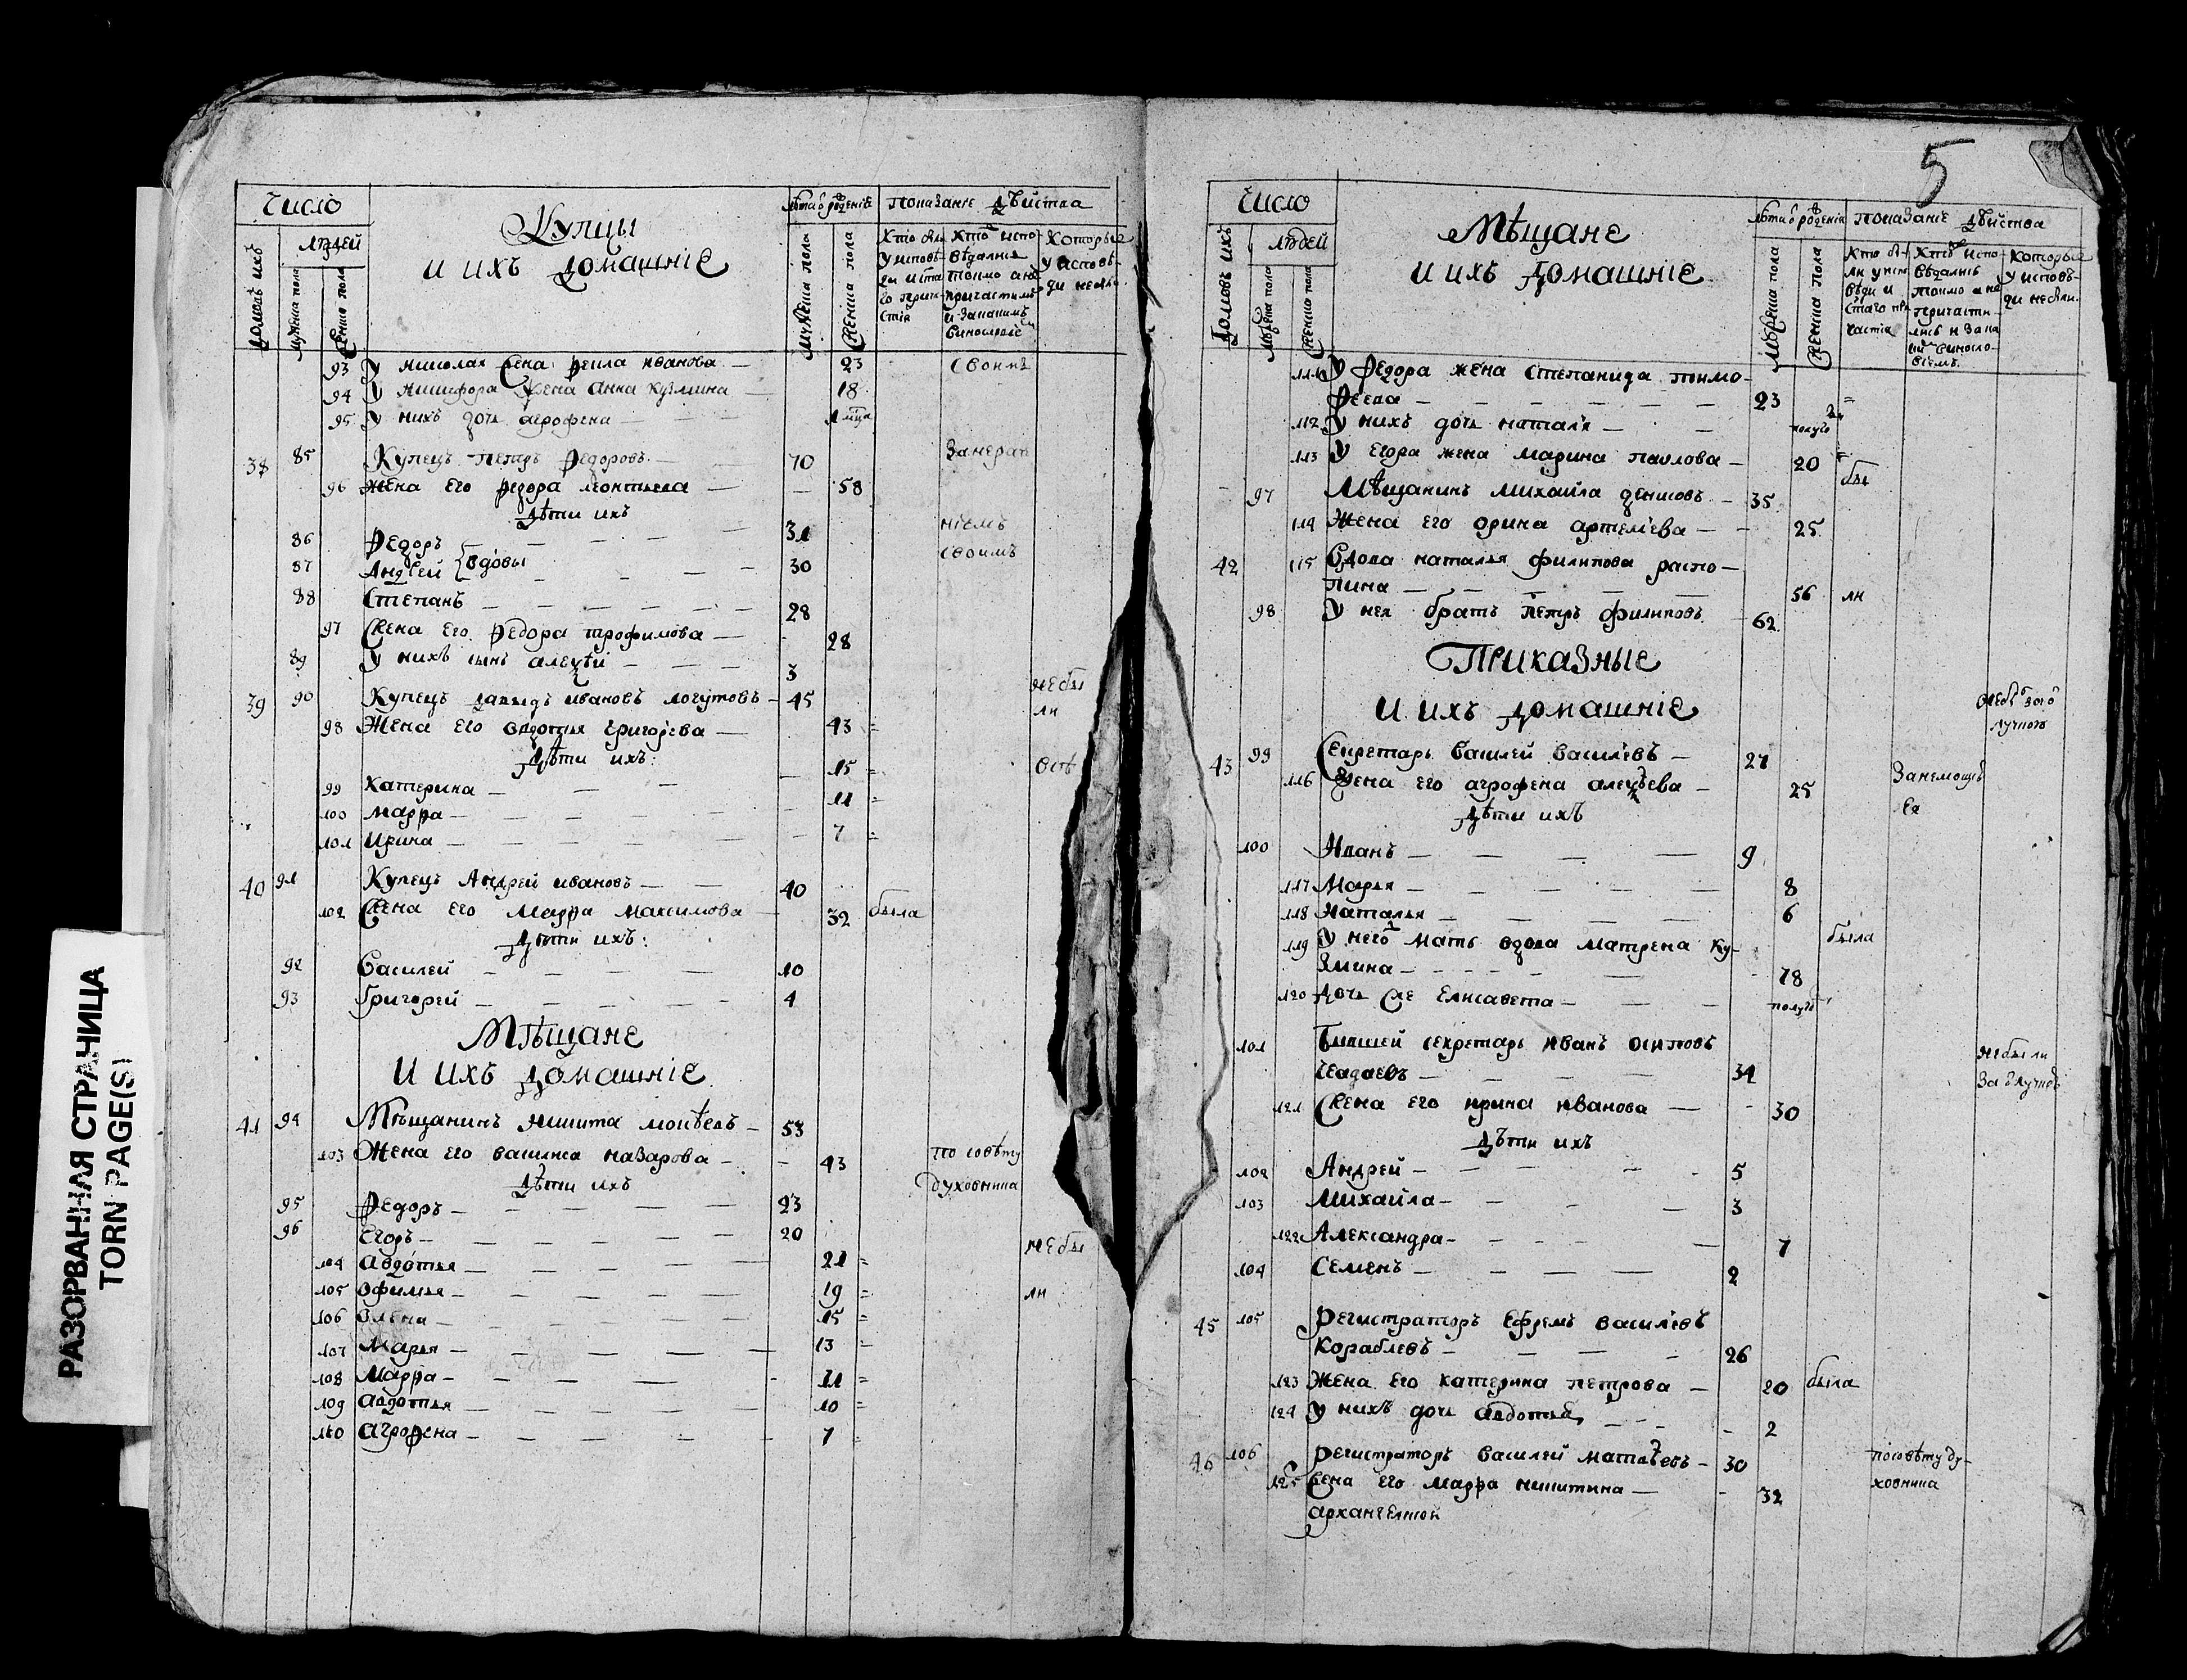 5
Число
людей
домовъ ихъ
мужеска пола
женска пола
Купцы
и ихъ домашніе
лѣта ѿ рожденіе
мужеска пола
женска пола
показаніе дѣиства
которые
у исповѣ-
93 У николая жена фекла иванова — 23 своимъ
94 У никифора жена анна кузмина — 18
95 У нихъ дочь агрофена —
38 85 Купецъ петръ федоровъ — 70
96 жена его федора леонтьева — 58
дѣти ихъ
86 федоръ — 31 ніемъ
87 Андрей вдовы — 30 своимъ
88 Степанъ — 28
97 жена его федора трофимова — 28
89 У нихъ сынъ алеѯѣи — 3
39 90 Купецъ давыдъ ивановъ логутовъ — 45 небы
98 Жена его овдотья григорьева — 43 = ли
дѣти ихъ:
99 Катерина — 15 =
100 марфа — 11 =
101 Ирина — 7 =
40 91 Купецъ Андрей ивановъ — 40
102 жена его марфа максимова — 32 была
дѣти ихъ:
92 Василей — 10
93 григорей — 4
Мѣщане
и ихъ домашніе
41 94 Мѣщанинъ никита моисѣевъ — 53
103 Жена его василиса назарова — 43 по совѣту
дѣти ихъ духовника
95 федоръ — 23
96 Егоръ — 20
104 авдотья — 21 = небы
105 офимья — 19 = ли
106 олѣна — 15 =
107 марья — 13 =
108 марфа — 11 =
109 авдотья — 10 =
110 агрофена — 7 =
Число
людей
домовъ ихъ
мужеска пола
женска пола
Мѣщане
и ихъ домашніе
лѣта ѿ рожденія
мужеска пола
женска пола
показаніе дѣиства
которые
у исповѣ-
ди небыли.
111 У федора жена степанида тимо-
феева — 23 =
112 У нихъ дочь наталья — полуго
113 У егора жена марина павлова — 20 =
97 Мѣщанинъ михайла денисовъ — 35 бы
114 жена его орина артемьева — 25
42 115 Вдова наталья филипова распо-
пина — 56 ли
98 У нея братъ петръ филиповъ 62
Приказные
и ихъ домашніе
43 99 Секретарь василей василевъ — 27
116 жена его агрофена алеѯѣева — 25 за немощь
дѣти ихъ ея
100 Иванъ — 9
117 Марья — 8
118 Наталья — 6
119 У него мать вдова матрена ку- была
змина — 78
120 дочь же елисавета — полуго
101 бывшей секретарь иванъ осиповъ небыли
чеадаевъ — 34
121 жена его ирина иванова — 30
дѣти ихъ
102 Андрей — 5
103 михайла — 3
122 Александра — 7
104 Семенъ — 2
45 105 Регистраторъ ефремъ василевъ
Кораблевъ — 26
123 жена его катерина петрова — 20 была
124 У нихъ дочь авдотья, — 2
46 106 Регистраторъ василей матвѣевъ — 30 посовѣту ду-
125 жена его марфа никитина — 32 ховника
РАЗОРВАННАЯ СТРАНИЦА
TORN PAGE(S)